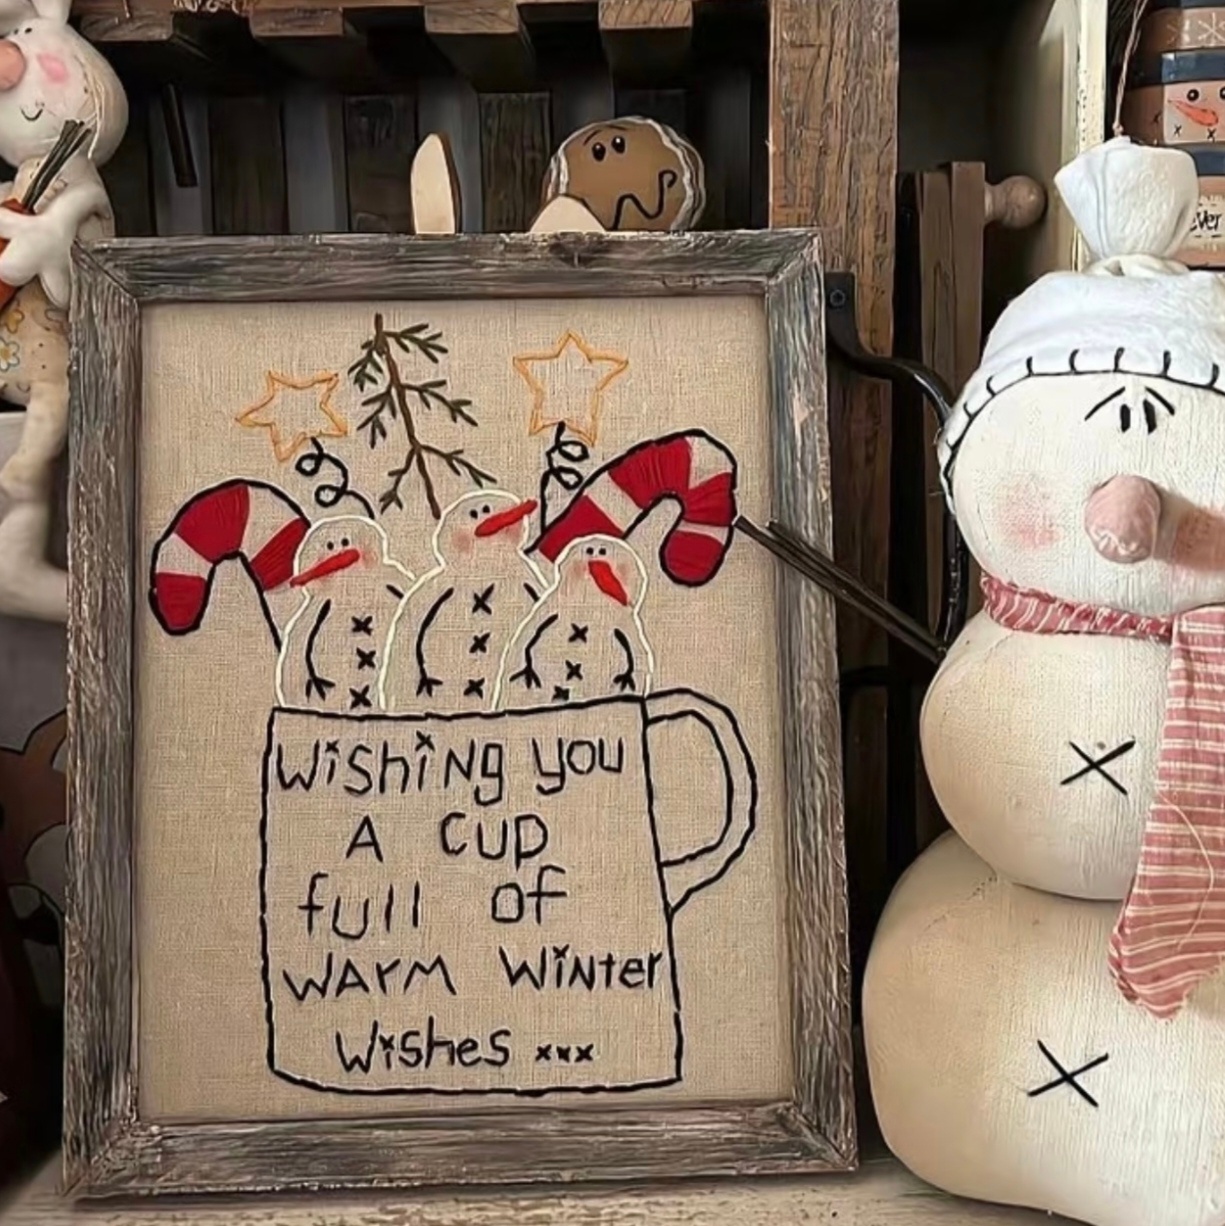 Wishing you
A CUP
full of
WARM WiNter
Wishes xxx
ever